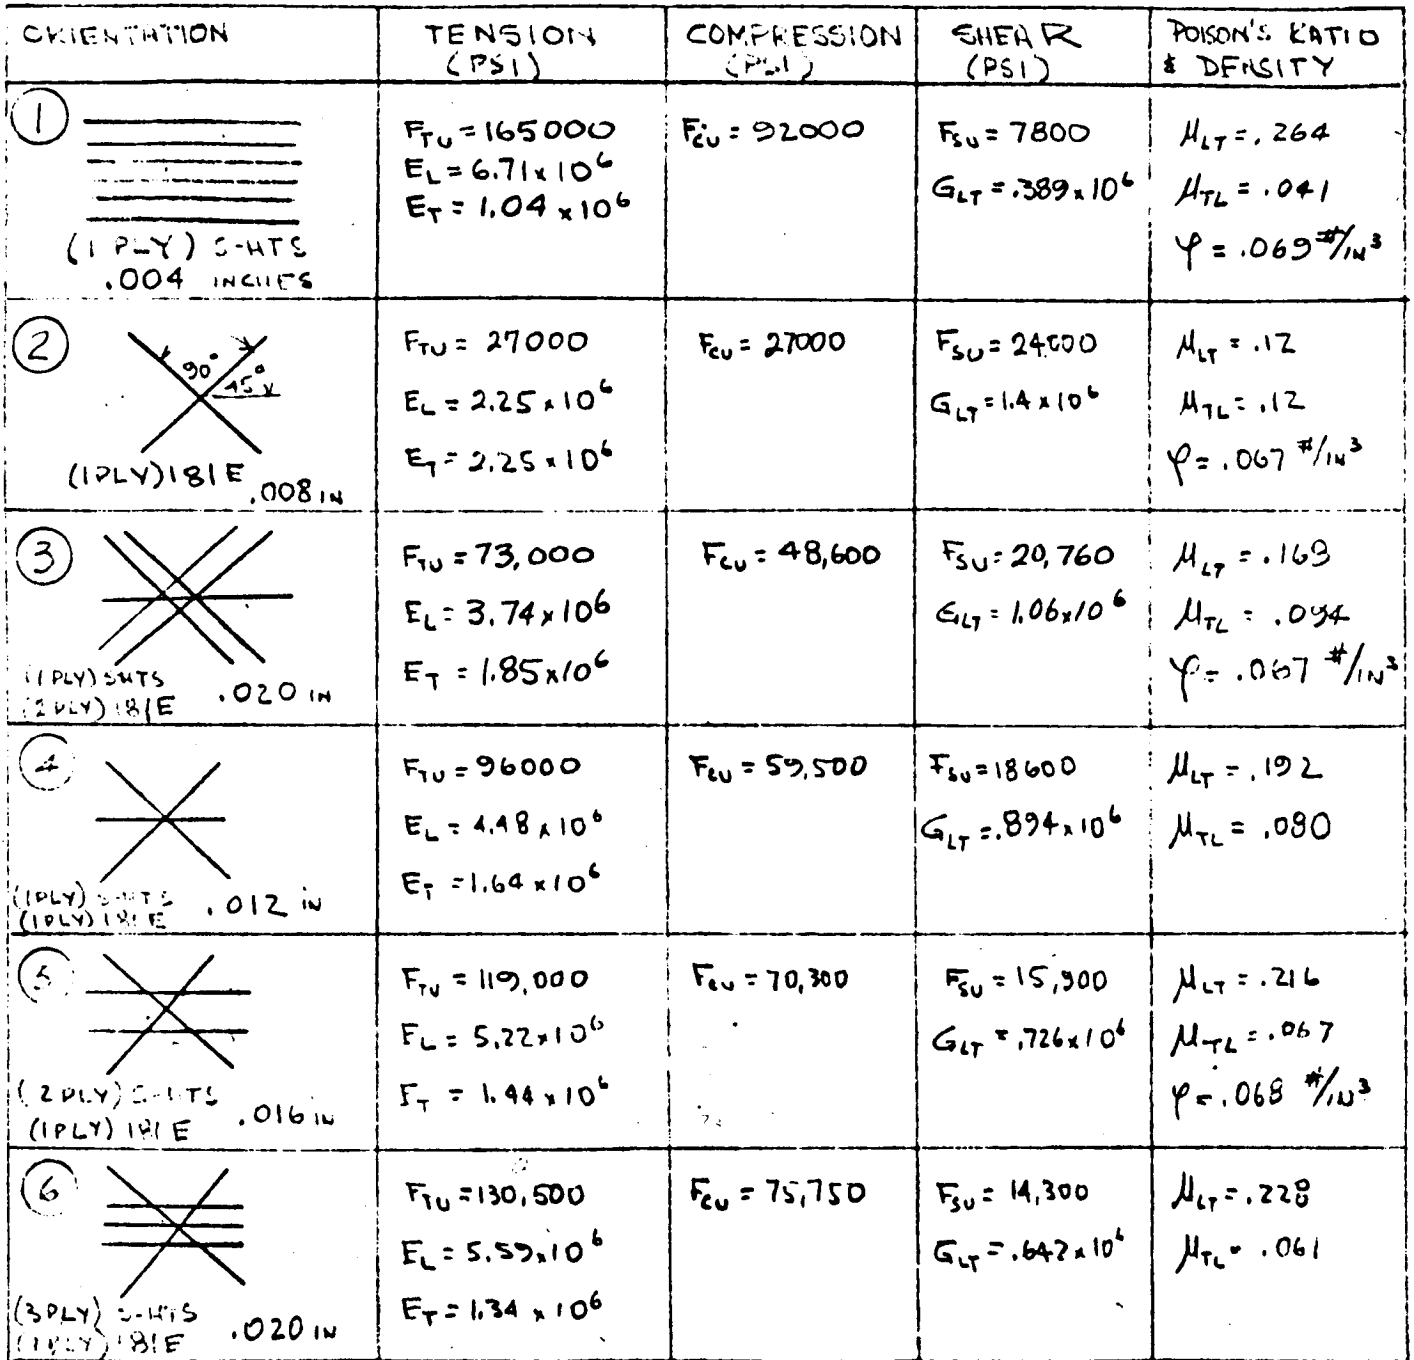 ORIENTATION
TENSION
(PSI)
COMPRESSION
(PSI)
SHEAR
(PSI)
POISON'S RATIO
& DENSITY
1
(1 PLY) S-HTS
.004 INCHES
F_TU = 165000
E_L = 6.71 x 10^6
E_T = 1.04 x 10^6
F_CU = 92000
F_SU = 7800
G_LT = .389 x 10^6
μ_LT = .264
μ_TL = .041
φ = .069 #/IN^3
2
90°
45°
(1PLY) 181E .008 IN
F_TU = 27000
E_L = 2.25 x 10^6
E_T = 2.25 x 10^6
F_CU = 27000
F_SU = 24000
G_LT = 1.4 x 10^6
μ_LT = .12
μ_TL = .12
φ = .067 #/IN^3
3
(1PLY) SHTS
(2PLY) 181E .020 IN
F_TU = 73,000
E_L = 3.74 x 10^6
E_T = 1.85 x 10^6
F_CU = 48,600
F_SU = 20,760
G_LT = 1.06 x 10^6
μ_LT =
μ_TL = .094
φ = .067 #/IN^3
4
(1PLY) S-HTS
(1PLY) 181E .012 in
F_TU = 96000
E_L = 4.48 x 10^6
E_T = 1.64 x 10^6
F_CU = 59,500
F_SU = 18600
G_LT = .894 x 10^6
μ_LT = .192
μ_TL =
5
(2 PLY) S-HTS
(1PLY) 181E .016 IN
F_TU = 119,000
E_L = 5.22 x 10^6
E_T = 1.44 x 10^6
F_CU = 70,300
F_SU = 15,900
G_LT = .726 x 10^6
μ_LT = .216
μ_TL = .067
φ = .068 #/IN^3
6
(3PLY) S-HTS
(1PLY) 181E .020 IN
F_TU = 130,500
E_L = 5.59 x 10^6
E_T = 1.34 x 10^6
F_CU = 75,750
F_SU = 14,300
G_LT = .642 x 10^6
μ_LT = .228
μ_TL = .061